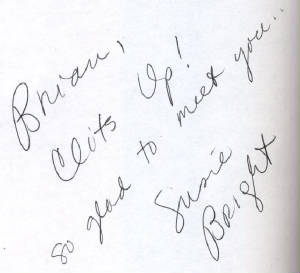 Brian,
Clits Up!
so glad to meet you..
Susie
Bright